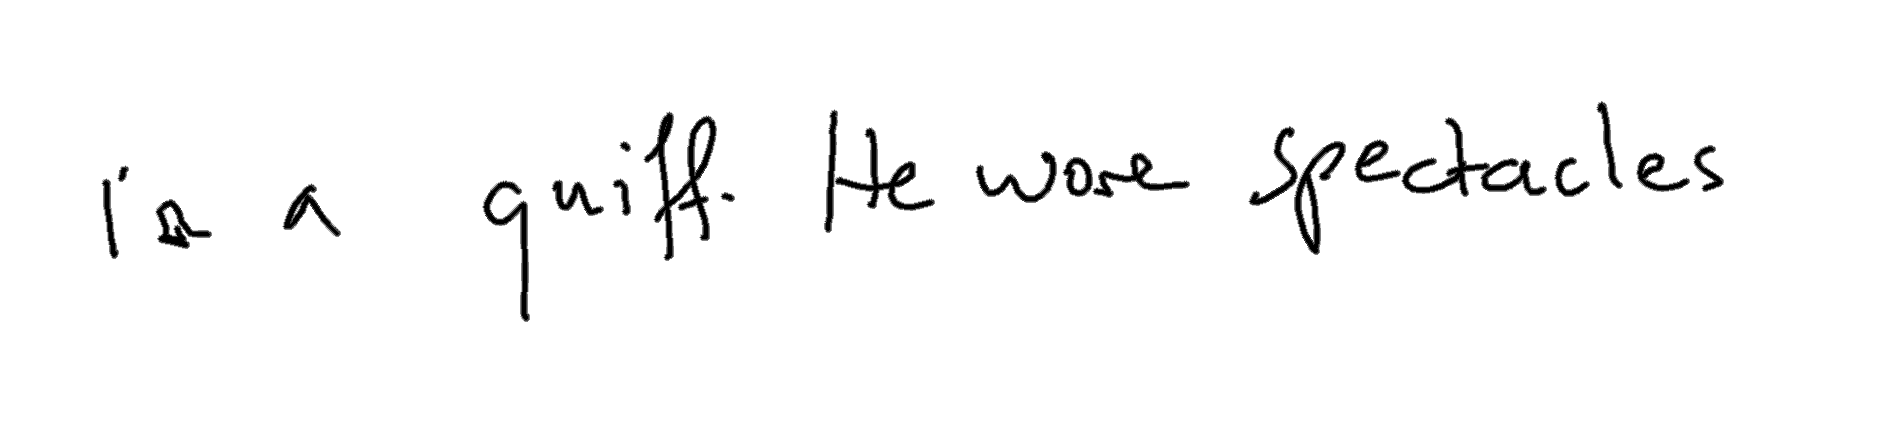 in a quiff. He wore spectacles